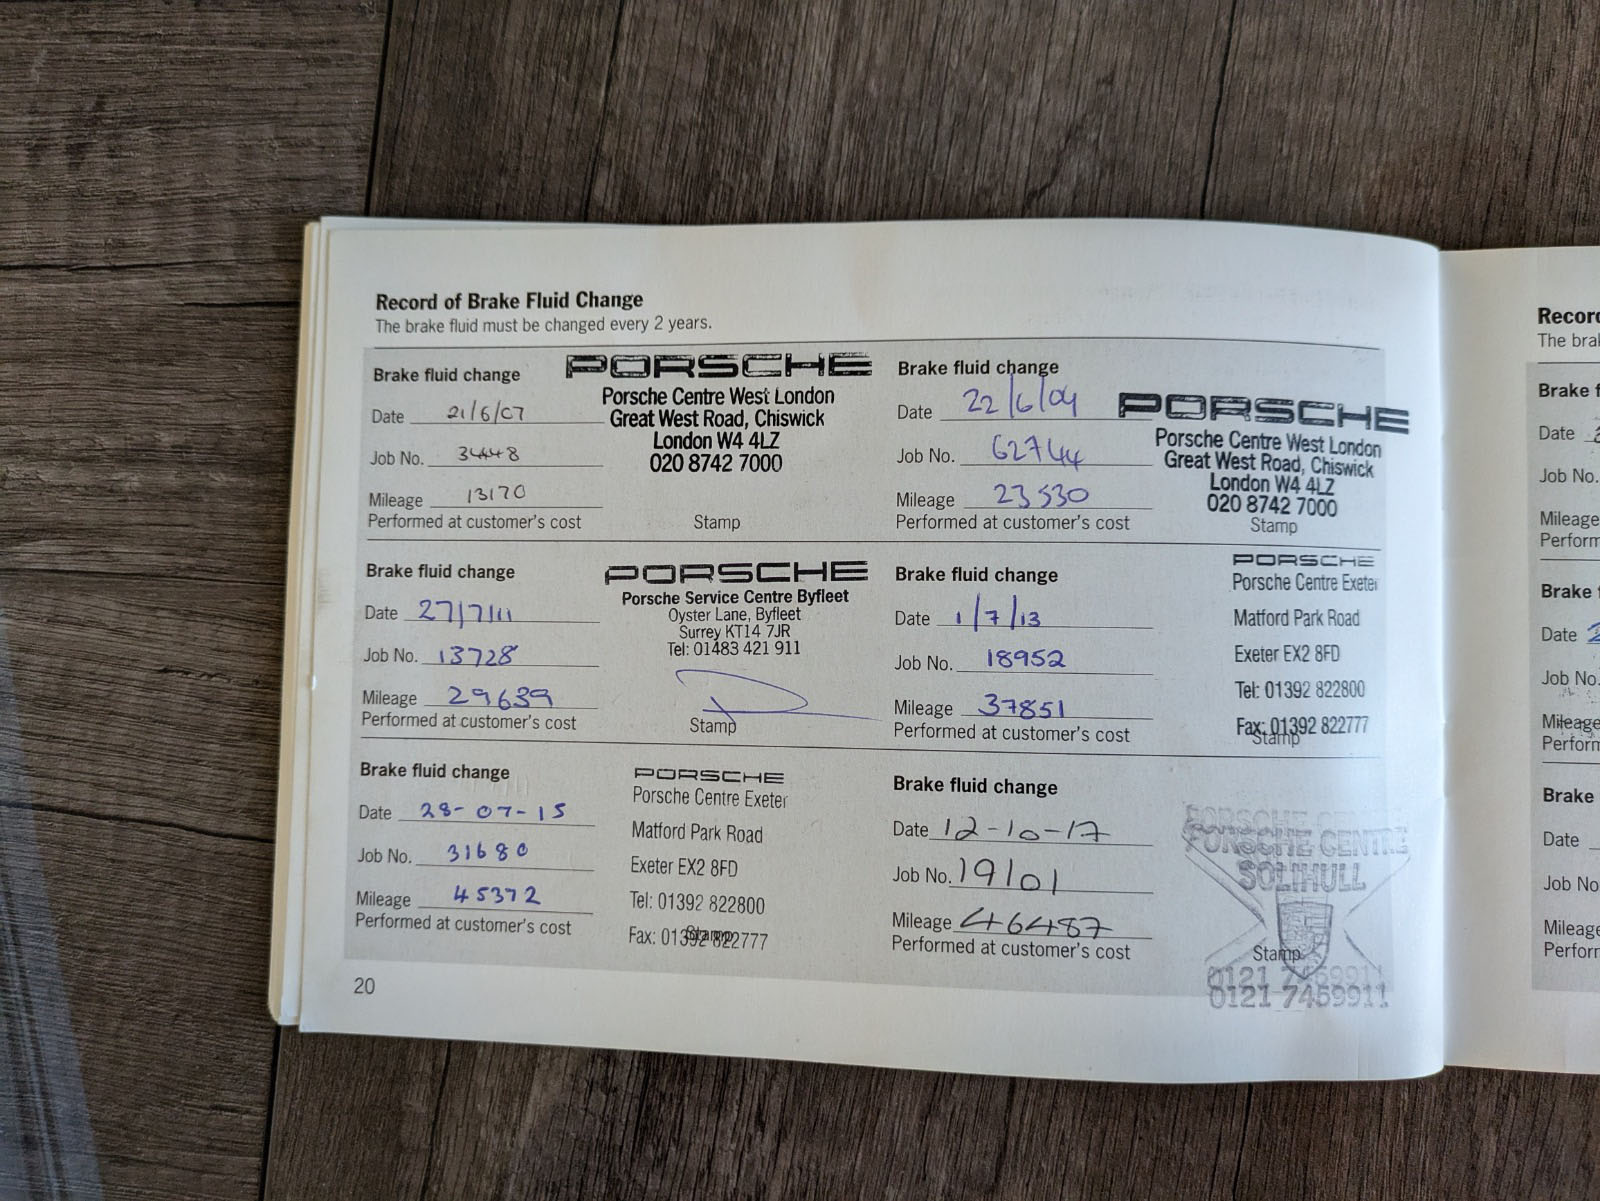 Record of Brake Fluid Change
The brake fluid must be changed every 2 years.
Brake fluid change
Date 21/6/07
Job No. 34448
Mileage 13170
Performed at customer's cost
PORSCHE
Porsche Centre West London
Great West Road, Chiswick
London W4 4LZ
020 8742 7000
Stamp
Brake fluid change
Date 22/6/09
Job No. 62744
Mileage 23530
Performed at customer's cost
PORSCHE
Porsche Centre West London
Great West Road, Chiswick
London W4 4LZ
020 8742 7000
Stamp
Brake fluid change
Date 27/7/11
Job No. 13728
Mileage 29639
Performed at customer's cost
PORSCHE
Porsche Service Centre Byfleet
Oyster Lane, Byfleet
Surrey KT14 7JR
Tel: 01483 421 911
Stamp
Brake fluid change
Date 1/7/13
Job No. 18952
Mileage 37851
Performed at customer's cost
PORSCHE
Porsche Centre Exeter
Matford Park Road
Exeter EX2 8FD
Tel: 01392 822800
Fax: 01392 822777
Stamp
Brake fluid change
Date 28-07-15
Job No. 31680
Mileage 45372
Performed at customer's cost
PORSCHE
Porsche Centre Exeter
Matford Park Road
Exeter EX2 8FD
Tel: 01392 822800
Fax: 01392 822777
Stamp
Brake fluid change
Date 12-10-17
Job No. 19101
Mileage 46487
Performed at customer's cost
PORSCHE CENTRE
SOLIHULL
Stamp
0121 7459911
20
Record
The bra
Brake f
Date
Job No.
Mileage
Perform
Brake f
Date 2
Job No.
Mileage
Perform
Brake
Date
Job No
Mileage
Perforr